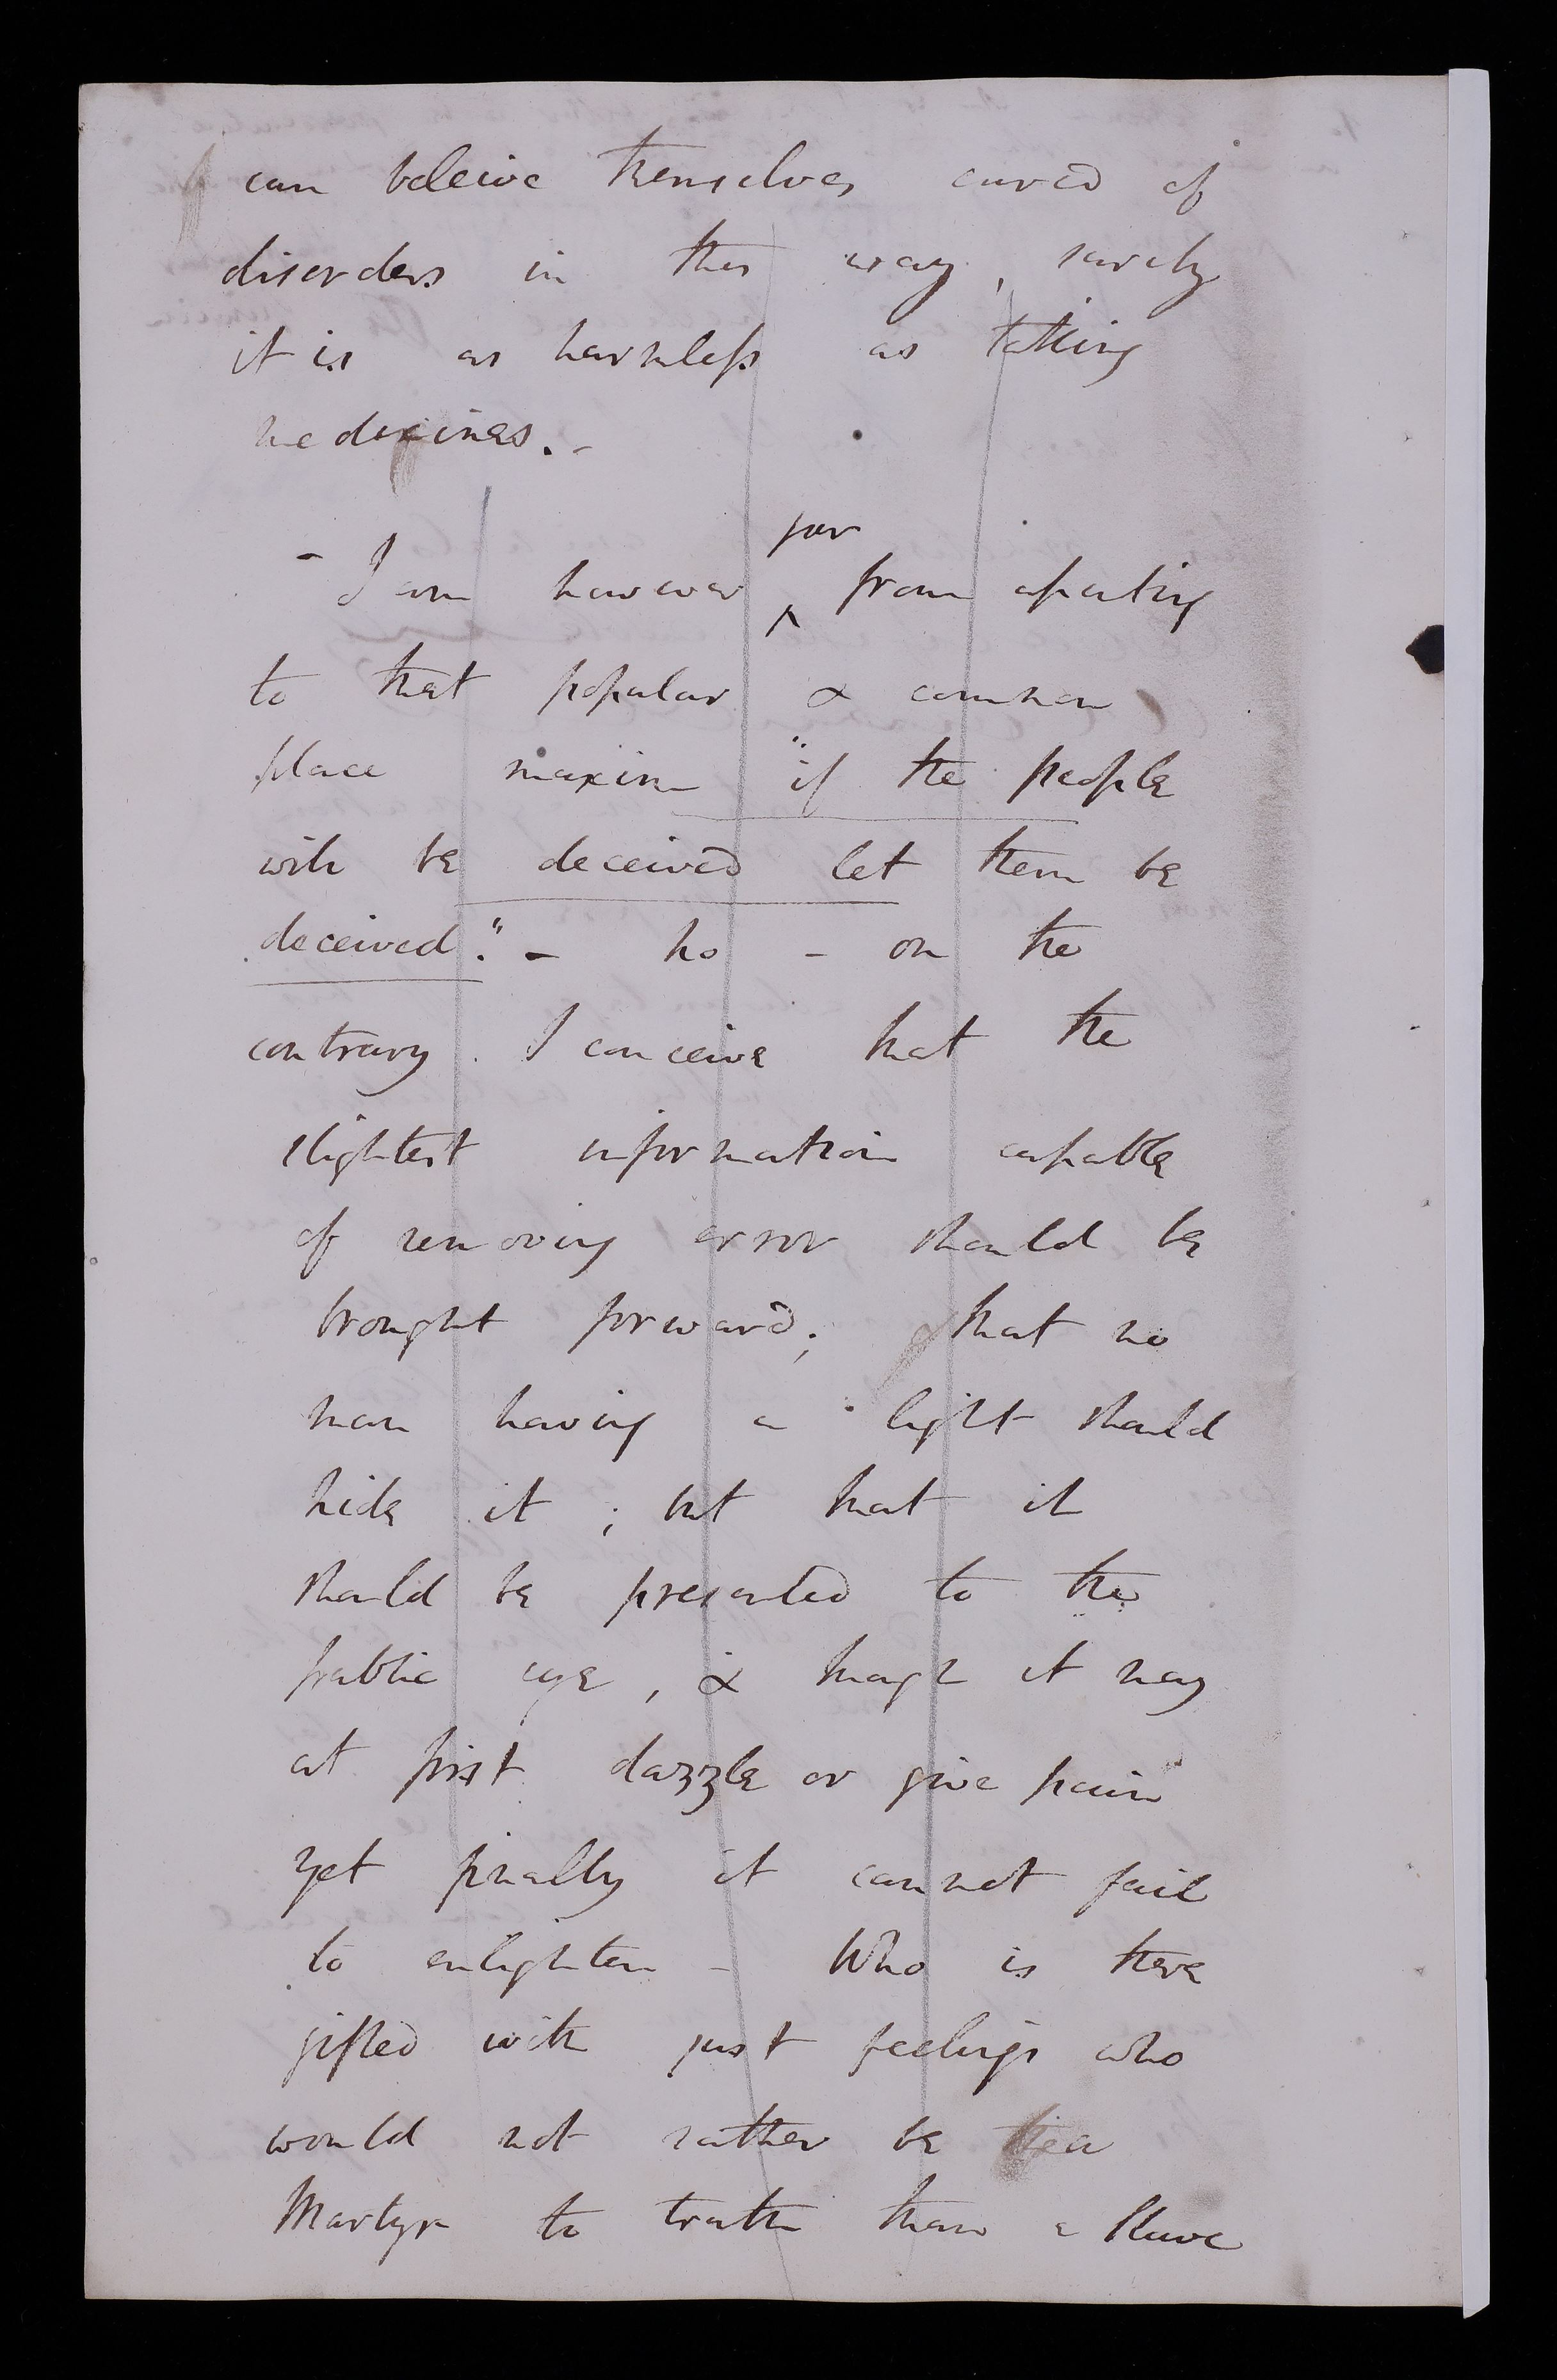 can beleive themselves cured of
disorders in this way, surely
it is as harmless as taking
medicines. -
far
- I am however ^ from
to that popular & common
place maxim "if the people
will be deceived let them be
deceived". - no - on the
contrary. I conceive that the
slightest information capable
of removing error should be
brought forward; & that no
man having a light should
hide it; but that it
should be presented to the
public eye, & though it may
at first dazzle or give pain
yet finally it cannot fail
to enlighten - Who is there
gifted with just feelings who
would not rather be
Martyr to truth than a slave